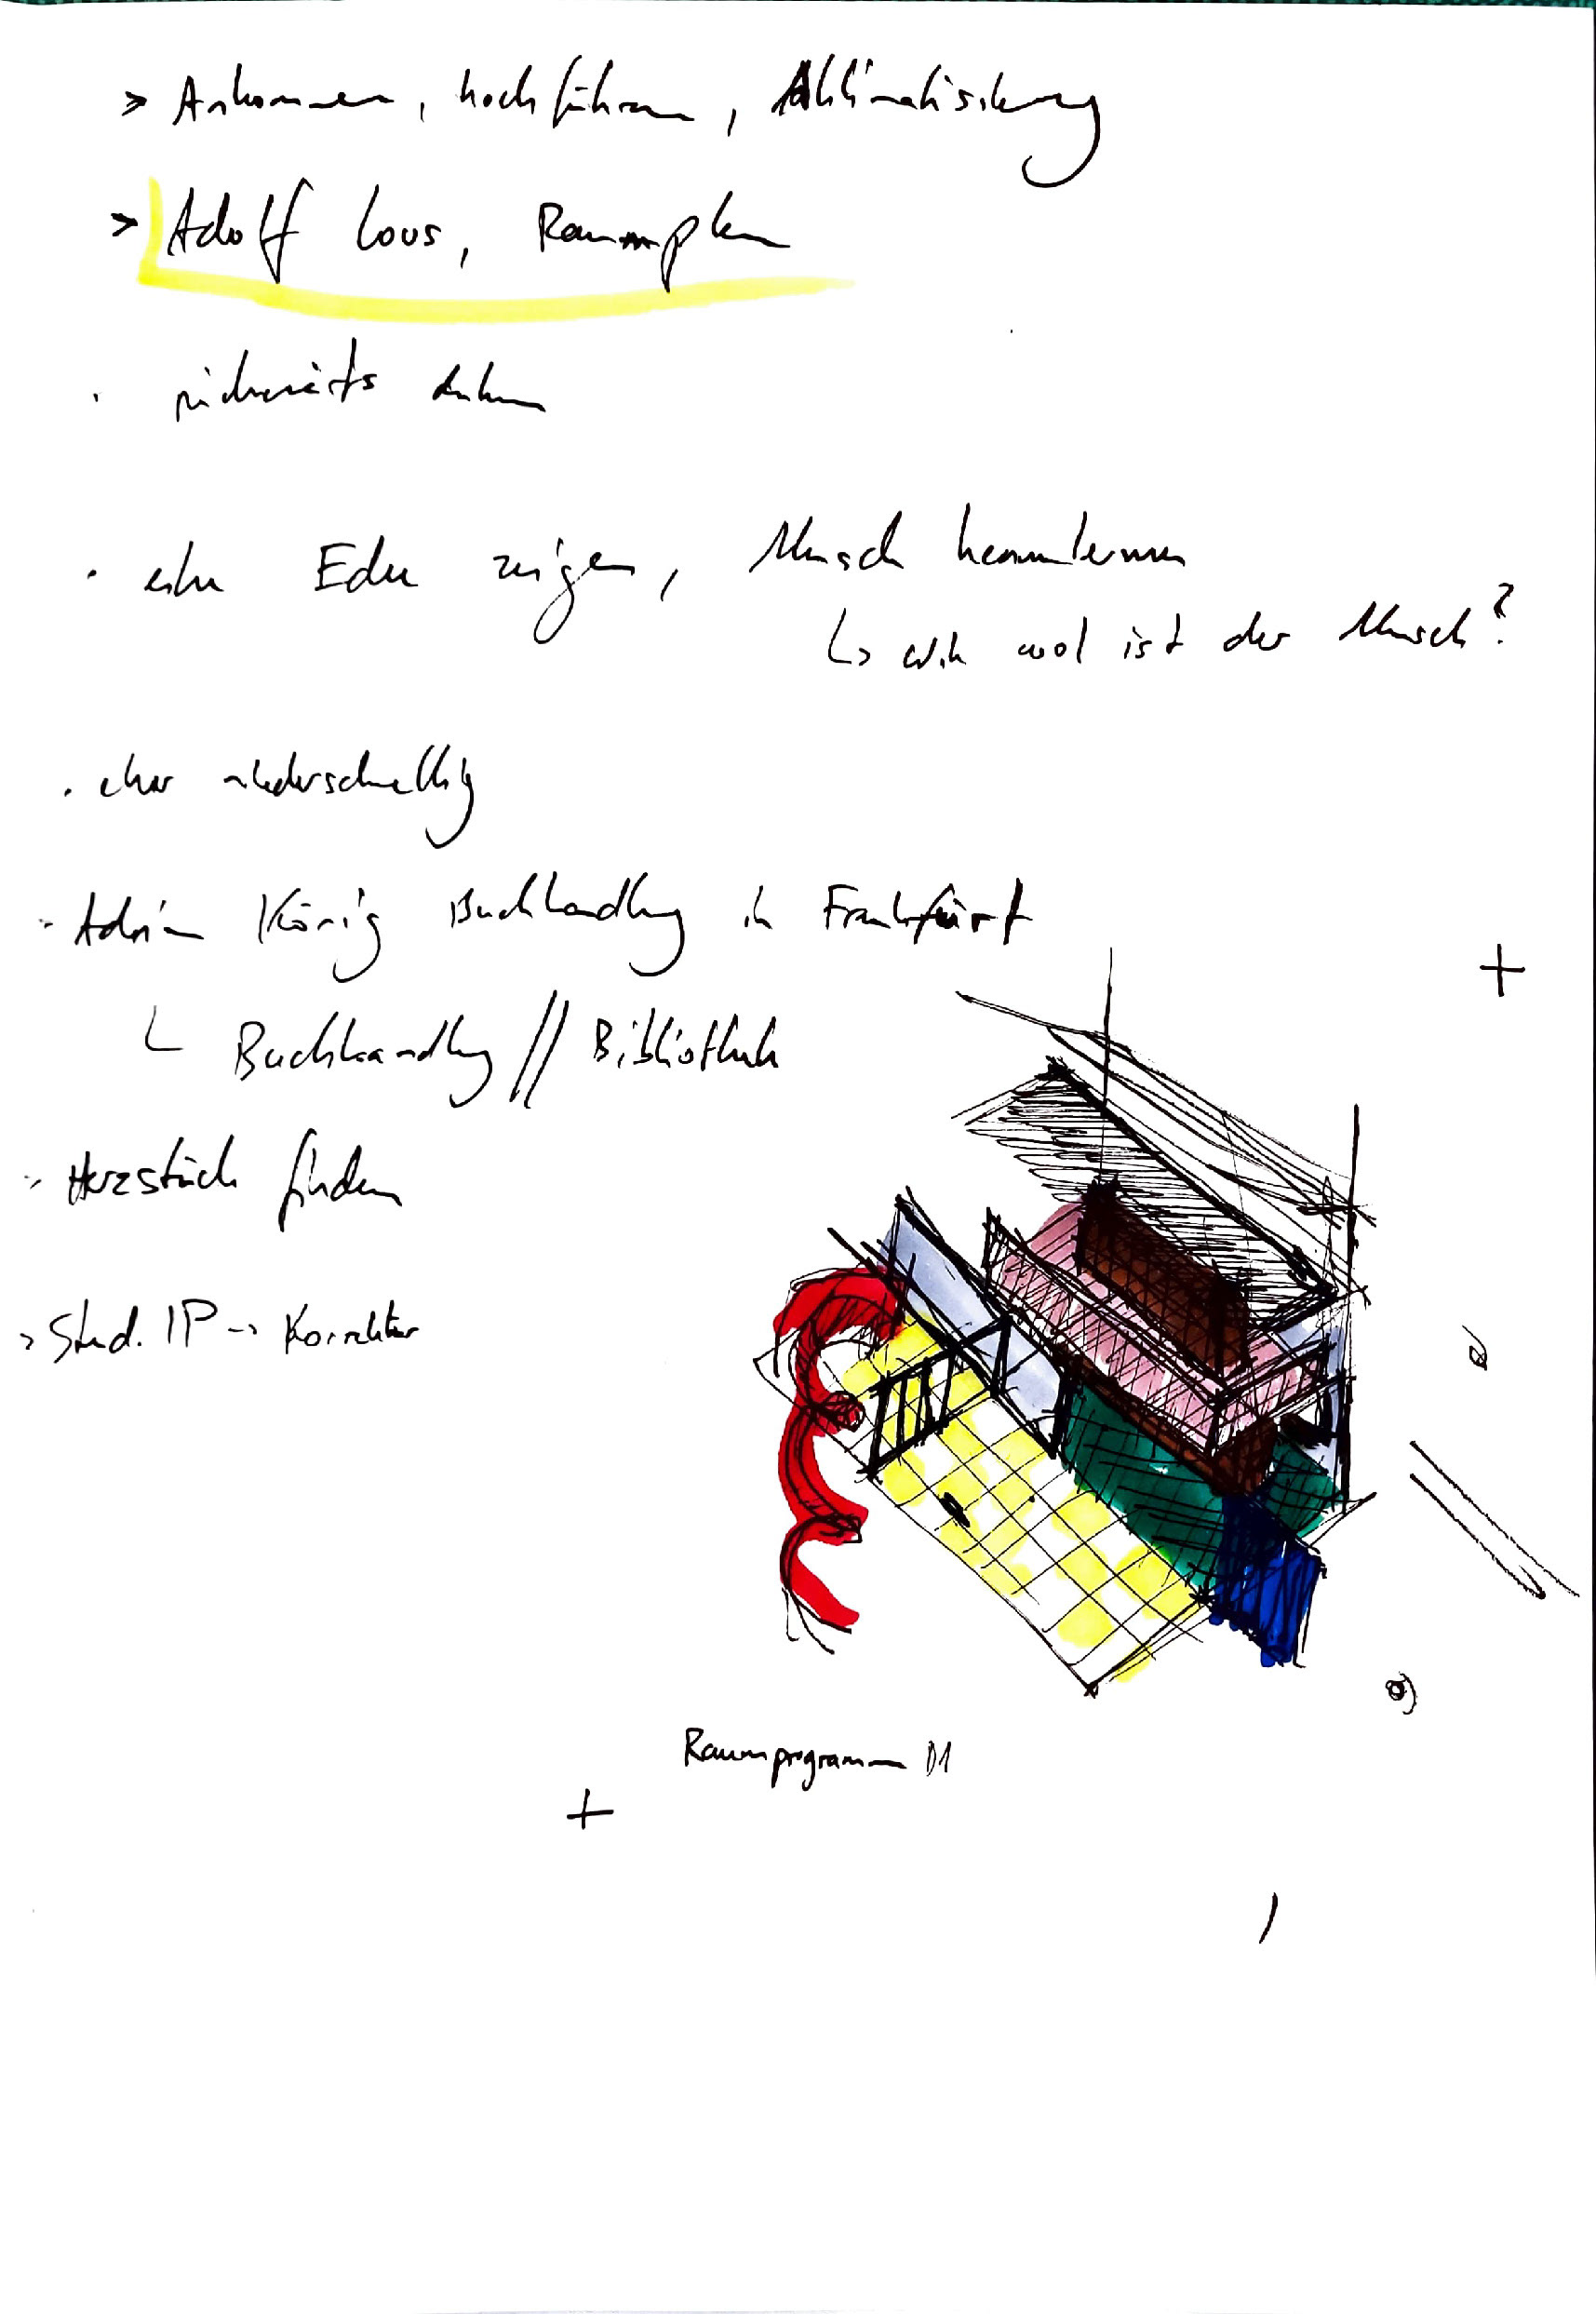 > Ankommen, hochführen, Akklimatisierung
> Adolf Loos, Raumplan
· denken
· zeigen, Mensch
↳ ist der Mensch?
· eher niederschwellig
· König Buchhandlung in Frankfurt
└ Buchhandlung // Bibliothek
· Herzstück finden
> Stud. IP → Korrektur
Raumprogramm 01